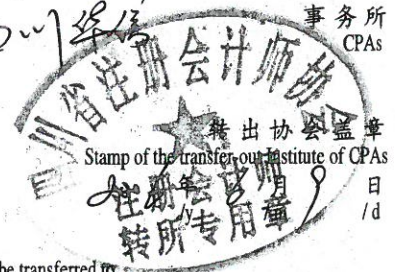 四川华信 事务所
CPAs
四川省注册会计师协会
转出协会盖章
Stamp of the transfer-out Institute of CPAs
年 月 9 日
/y /d
注册会计师
转所专用章
be transferred to